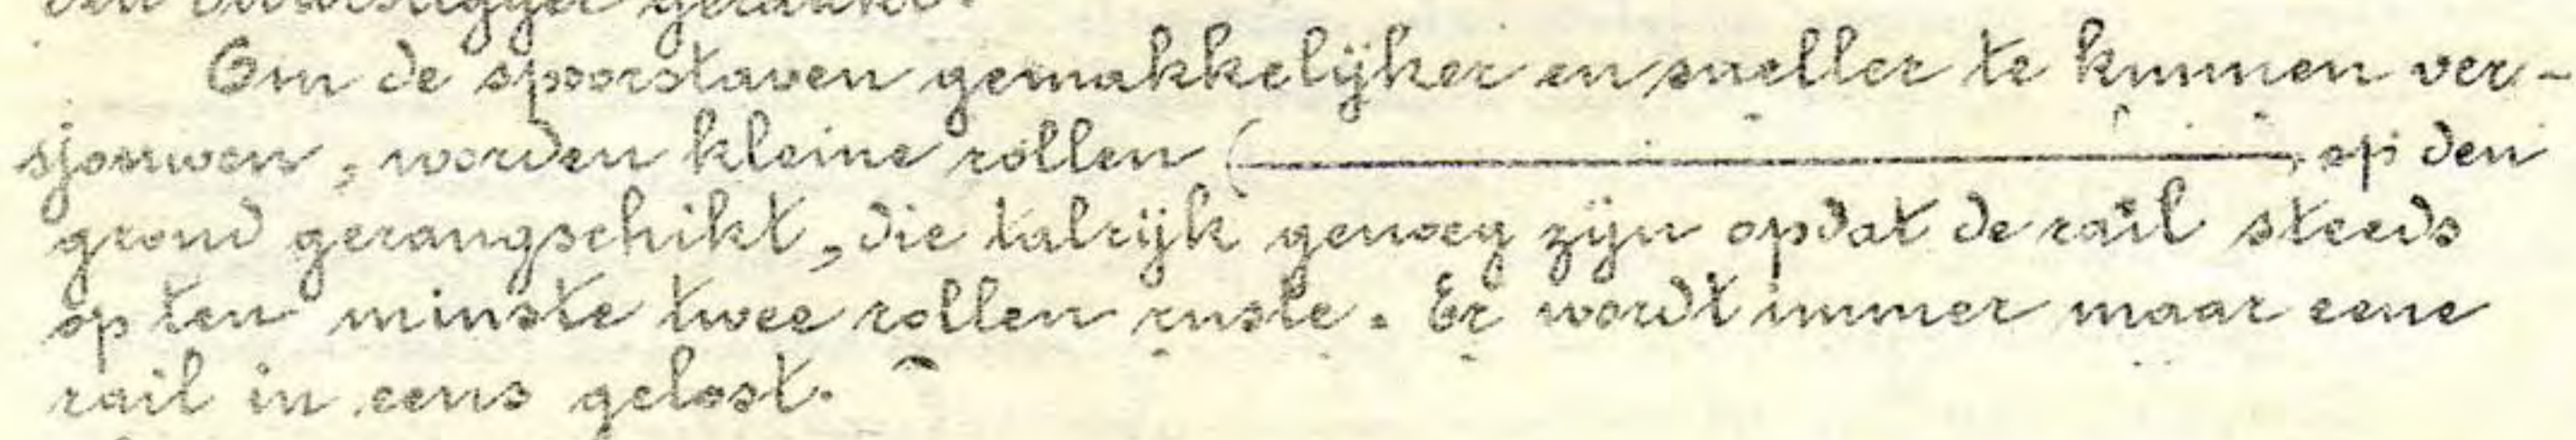 Om de spoorstaven gemakkelijker en sneller te kunnen ver-
sjouwen, worden kleine rollen ( op den
grond gerangschikt, die talrijk genoeg zijn opdat de rail steeds
op ten minste twee rollen ruste. Er wordt immer maar eene
rail in eens gelost.